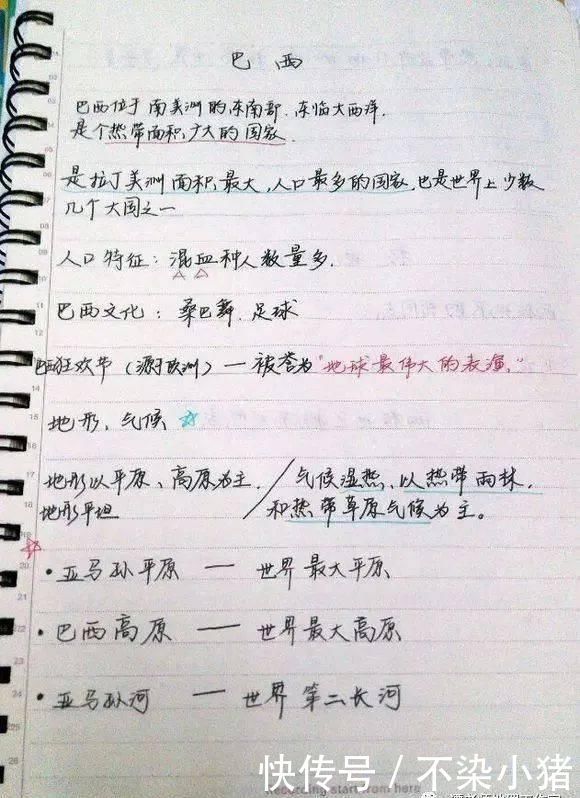 巴西
巴西位于南美洲的东南部,东临大西洋.
是个热带面积广大的国家.
是拉丁美洲面积最大,人口最多的国家,也是世界上少数
几个大国之一
人口特征:混血种人数量多.
巴西文化:桑巴舞.足球
巴西狂欢节(源于欧洲)—被誉为"地球最伟大的表演,"
地形,气候
地形以平原、高原为主. / 气候湿热,以热带雨林.
地形平坦 和热带草原气候为主。
·亚马孙平原 — 世界最大平原
·巴西高原 — 世界最大高原
·亚马孙河 — 世界第二长河
快传号/不染小猪
Recording start from here